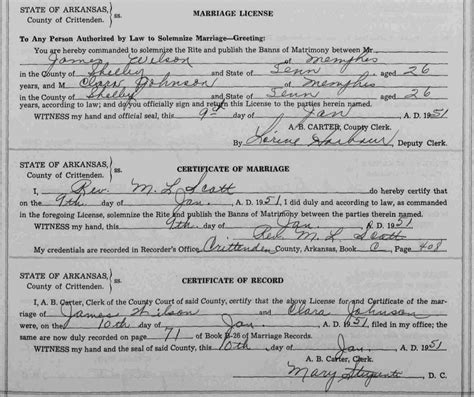 STATE OF ARKANSAS,
County of Crittenden. ss.
MARRIAGE LICENSE
To Any Person Authorized by Law to Solemnize Marriage—Greeting:
You are hereby commanded to solemnize the Rite and publish the Banns of Matrimony between Mr.
James Wilson of Memphis
in the County of Shelby and State of Tenn aged 26
years, and M Clara Johnson of Memphis
in the County of Shelby and State of Tenn aged 26
years, according to law; and do you officially sign and return this License to the parties herein named.
WITNESS my hand and official seal, this 9th day of Jan A. D. 1951
A. B. CARTER, County Clerk.
By Deputy Clerk.
STATE OF ARKANSAS,
County of Crittenden. ss.
CERTIFICATE OF MARRIAGE
I, Rev. M. L. Scott do hereby certify that
on the 9th day of Jan. A. D. 1951, I did duly and according to law, as commanded
in the foregoing License, solemnize the Rite and publish the Banns of Matrimony between the parties therein named.
WITNESS my hand this 9th day of Jan. 1951
Rev. M. L. Scott
My credentials are recorded in Recorder's Office, Crittenden County, Arkansas, Book C Page 408
STATE OF ARKANSAS,
County of Crittenden. ss.
CERTIFICATE OF RECORD
I, A.B. Carter, Clerk of the County Court of said County, certify that the above License for and Certificate of the mar-
riage of James Wilson and Clara Johnson
were, on the 10th day of Jan. A. D. 1951, filed in my office; the
same are now duly recorded on page 71 of Book 26 of Marriage Records.
WITNESS my hand and the seal of said County, this 10th day of Jan. A. D. 1951
A. B. Carter, Clerk.
Mary D. C.